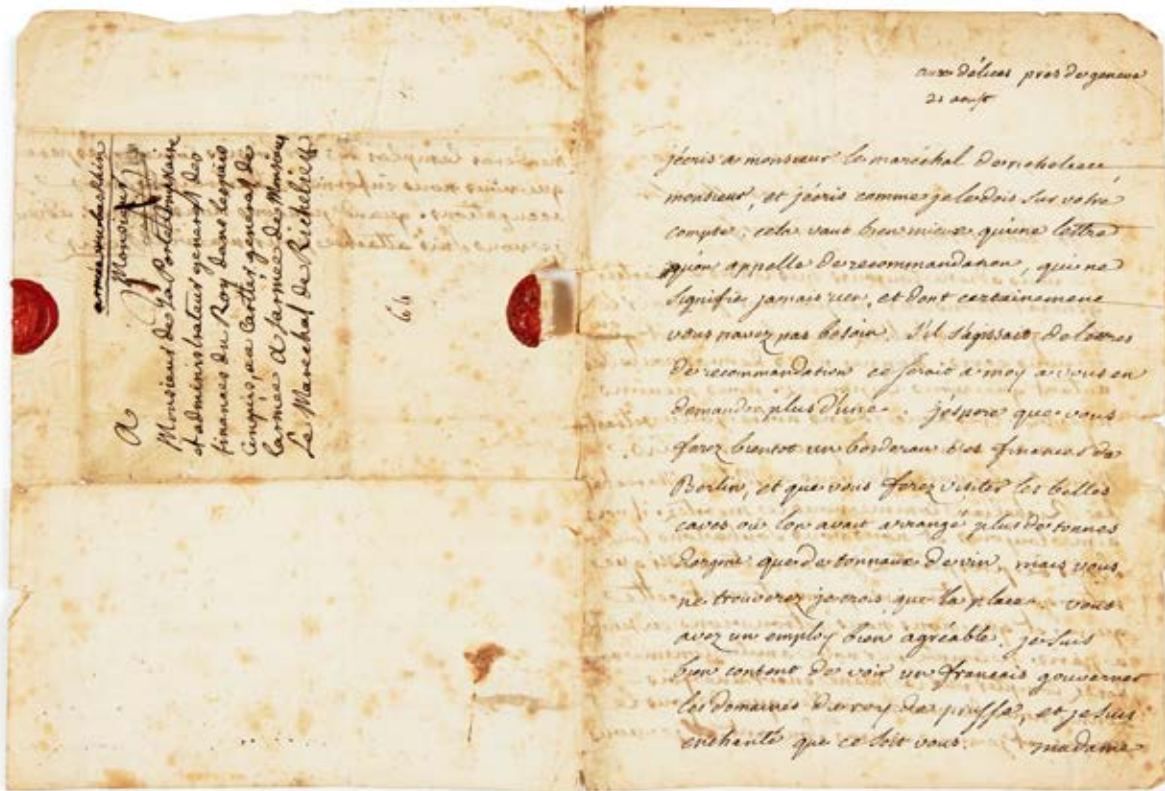 A
Monsieur
Monsieur de la Porte
administrateur general des
finances du Roy dans les païs
conquis, au Cartier general de
larmée a larmée de Monsieur
Le Marechal de Richelieu
66
aux délices pres de geneve
21 aoust
jécris a monsieur le maréchal de richelieu,
monsieur, et jécris comme je le dois sur votre
compte; cela vaut bien mieux qu'une lettre
qu'on appelle de recommandation, qui ne
signifie jamais rien, et dont certainement
vous n'avez pas besoin. s'il s'agissait de lettres
de recommandation ce serait a moy a vous en
demander plus d'une. jespere que vous
ferez bientot un borderau des finances de
Berlin, et que vous ferez visiter les belles
caves ou l'on avait arrangé plus de tonnes
dargent que de tonnaux de vin, mais vous
ne trouverez je crois que la place. vous
avez un employ bien agréable. je suis
bien content de voir un français gouverner
les domaines du roy de prusse, et je suis
enchanté que ce soit vous. madame